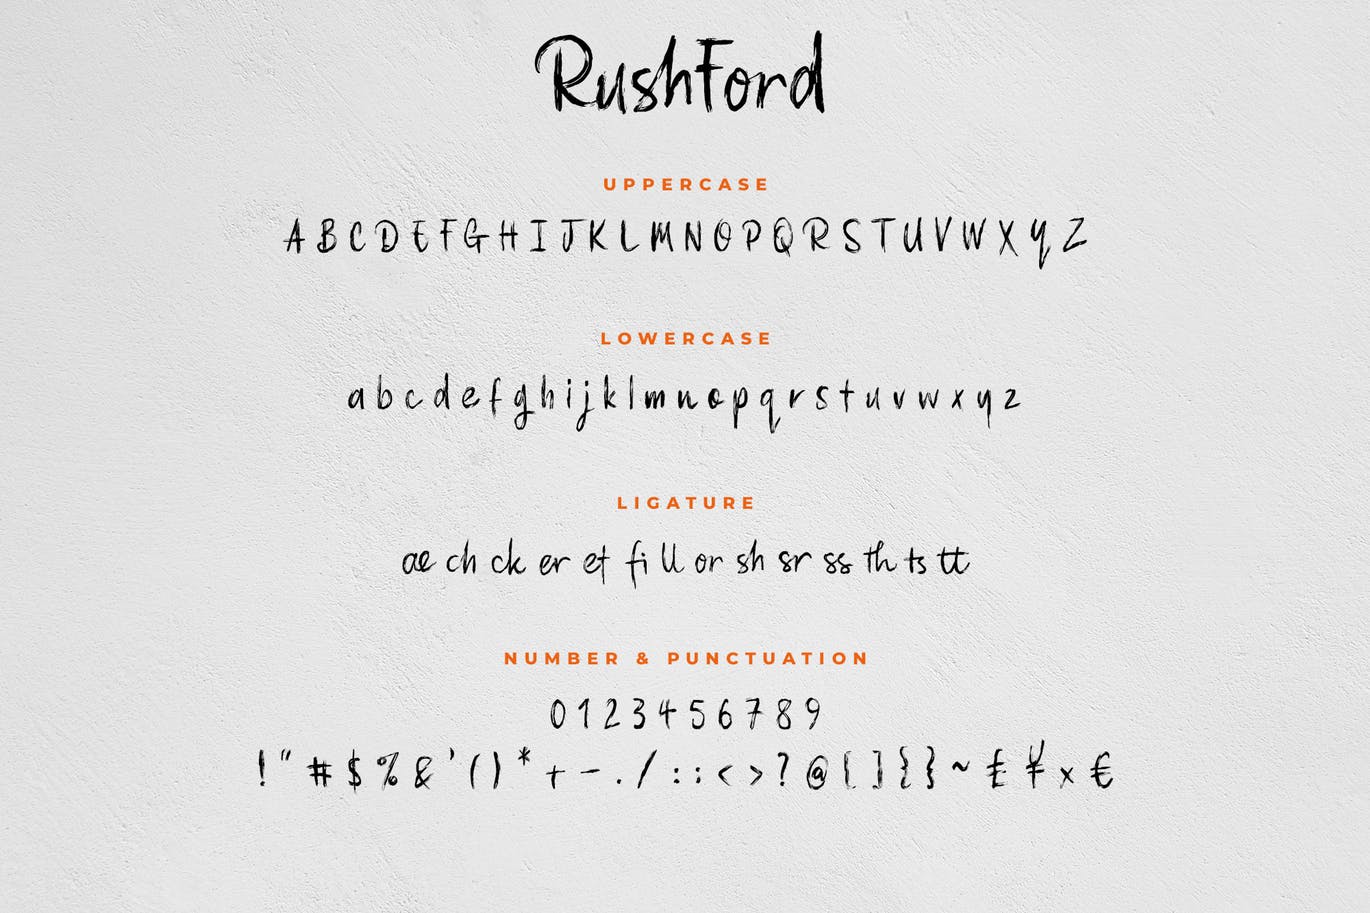 RushFord
UPPERCASE
A B C D E F G H I J K L M N O P Q R S T U V W X Y Z
LOWERCASE
a b c d e f g h i j k l m n o p q r s t u v w x y z
LIGATURE
ae ch ck er et fi ll or sh sr ss th ts tt
NUMBER & PUNCTUATION
0 1 2 3 4 5 6 7 8 9
! " # $ % & ' ( ) * + - . / : : < > ? @ [ ] { } ~ £ ¥ × €